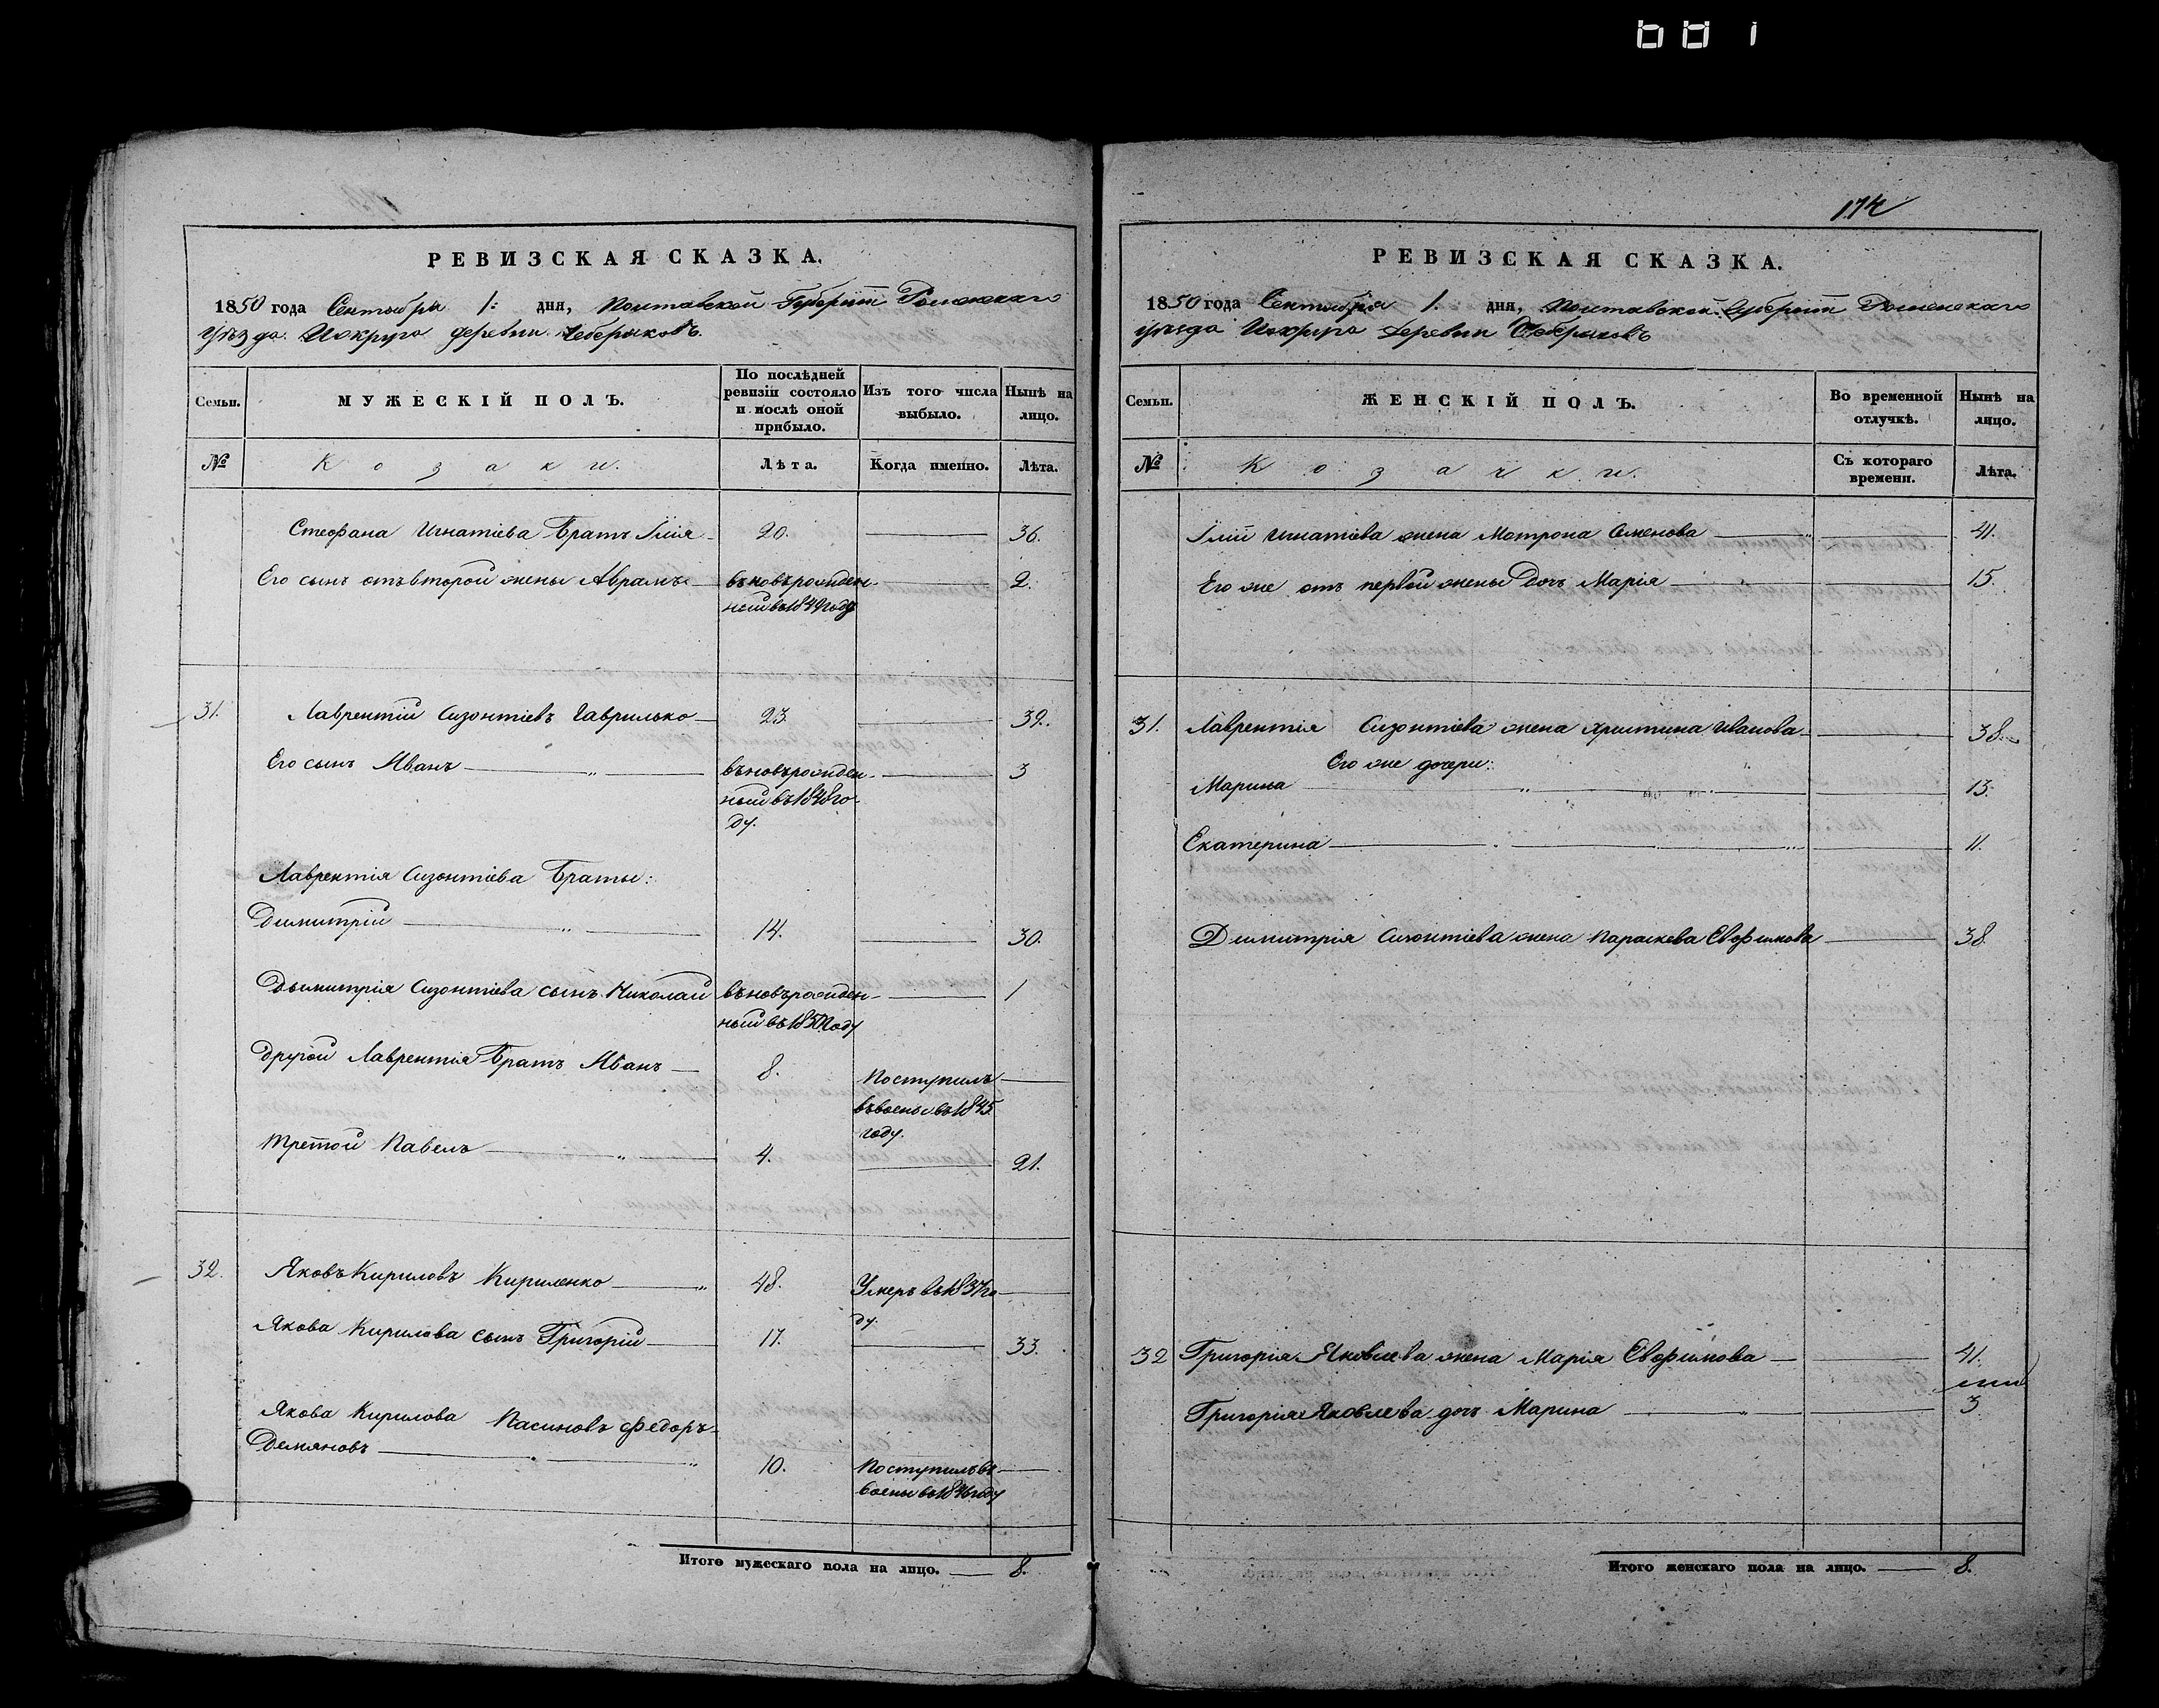 174
РЕВИЗСКАЯ СКАЗКА.
1850 года Сентября 1: дня, Полтавской Губерніи Роменскаго
Уѣзда. Округа деревни Чебрыковъ.
Семьи.
МУЖЕСКІЙ ПОЛЪ.
По послѣдней ревизіи состояло и послѣ оной прибыло.
Изъ того числа выбыло.
Нынѣ на лицо.
№
Козаки.
Лѣта.
Когда именно.
Лѣта.
Стефана Игнатіева Братъ Илія 20. 36.
Его сынъ отъ второй жены Аврамъ въновърожден- 2.
ный въ 1849 году
31. Лаврентій Сизонтіевъ Гаврилько 23. 39.
Его сынъ Иванъ въновърожден- 3
ный въ 1848 го-
ду.
Лаврентія Сизонтіева Браты:
Димитрій 14. 30.
Димитрія Сизонтіева сынъ Николай въновърожден- 1
ный въ 1850 году
Другой Лаврентія Братъ Иванъ 8. Поступилъ
въ воены въ 1845
году.
Третой Павелъ 4. 21.
32. Яковъ Кириловъ Кириленко 48. Умеръ въ 1837 го
ду.
Якова Кирилова сынъ Григорій 17. 33.
Якова Кирилова Пасинокъ Федоръ
Демяновъ 10. Поступилъ въ
воены въ 1846 году
Итого мужескаго пола на лицо. 8.
РЕВИЗСКАЯ СКАЗКА.
1850 года Сентября 1. дня, Полтавской Губерніи Роменскаго
уѣзда Округа деревни Чебрыковъ
Семьи.
ЖЕНСКІЙ ПОЛЪ.
Во временной отлучкѣ.
Нынѣ на лицо.
№
Козачки.
Съ котораго времени.
Лѣта.
Иліи Игнатіева жена Мотрона Семенова 41.
Его же отъ первой жены дочь Марія 15.
31. Лаврентія Сизонтіева жена Христина Иванова 38.
Его же дочери:
Марина 13.
Екатерина 11.
Димитрія Сизонтіева жена Параскева Евфимова 38.
32 Григорія Яковлева жена Марія Евфимова 41.
Григорія Яковлева дочь Марина 3
Итого женскаго пола на лицо. 8.